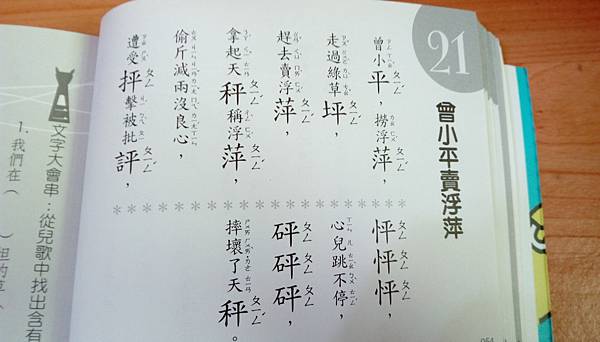 21
曾小平賣浮萍
曾小平，撈浮萍，
走過綠草坪，
趕去賣浮萍，
拿起天秤稱浮萍，
偷斤減兩沒良心，
遭受抨擊被批評，
怦怦怦，
心兒跳不停，
砰砰砰，
摔壞了天秤。
文字大會串：從兒歌中找出含有
1. 我們在（